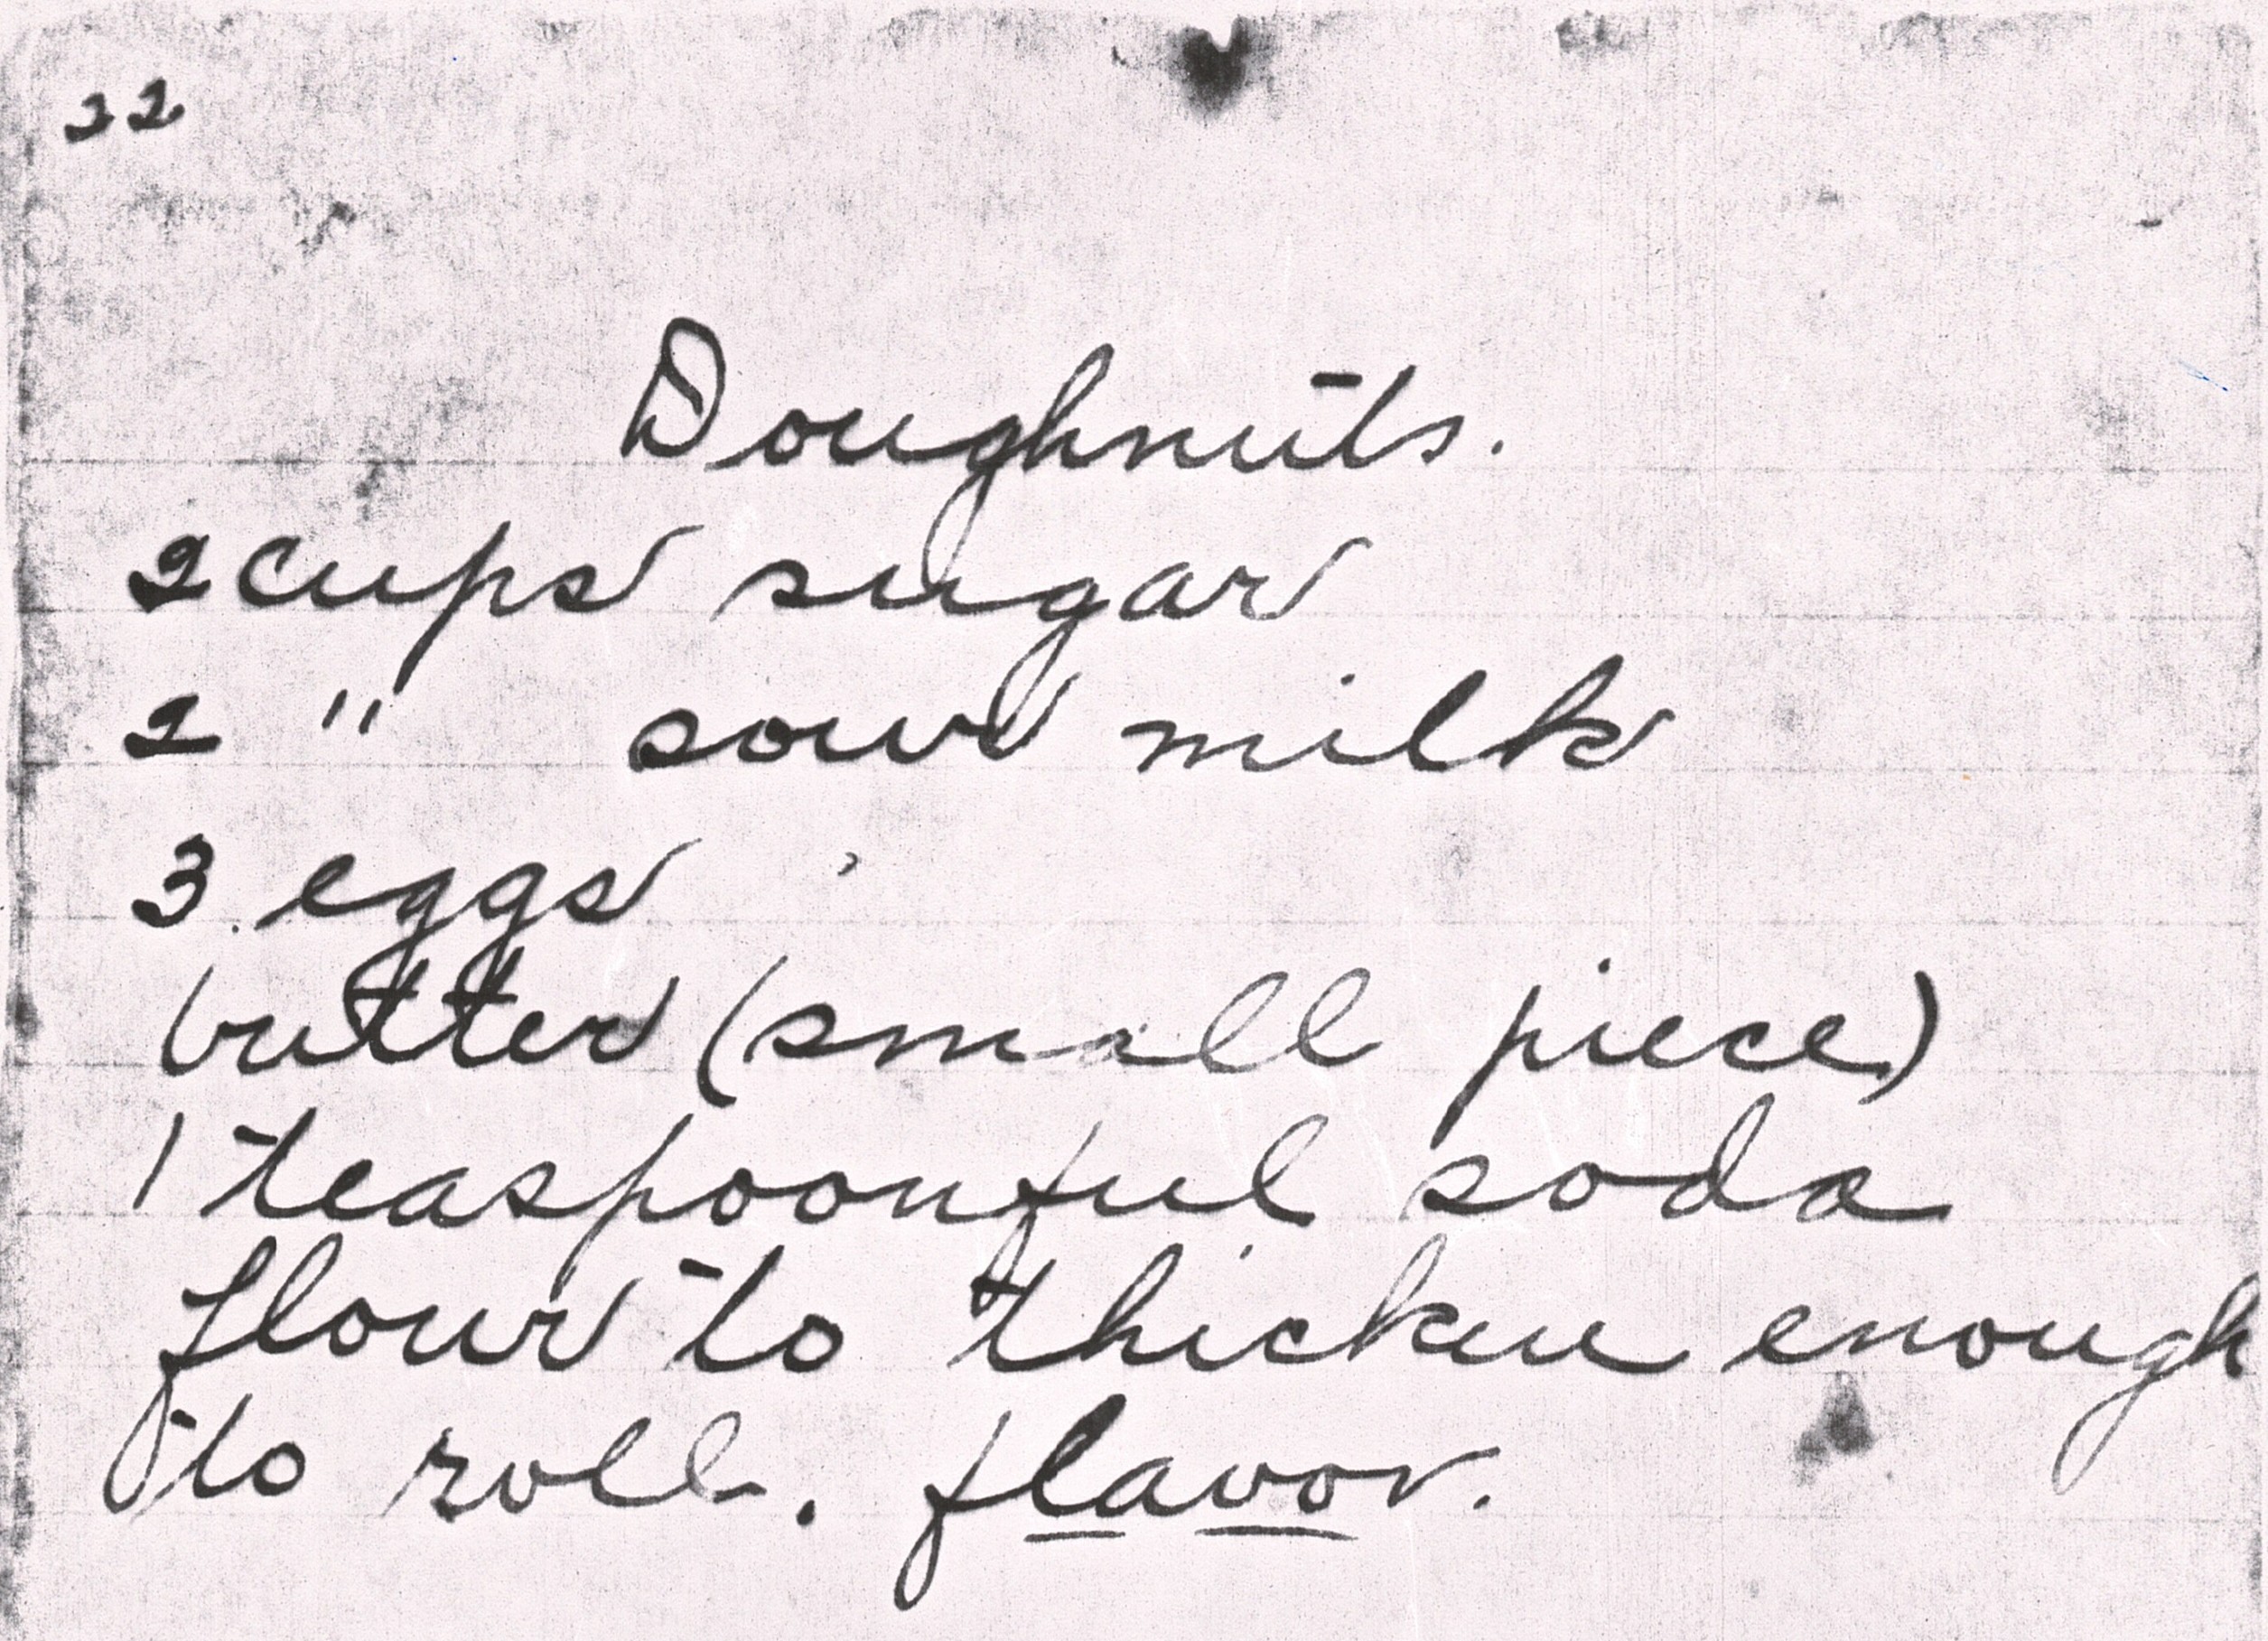 22
Doughnuts.
2 cups sugar
2 " sour milk
3 eggs
butter (small piece)
1 teaspoonful soda
flour to thicken enough
to roll. flavor.